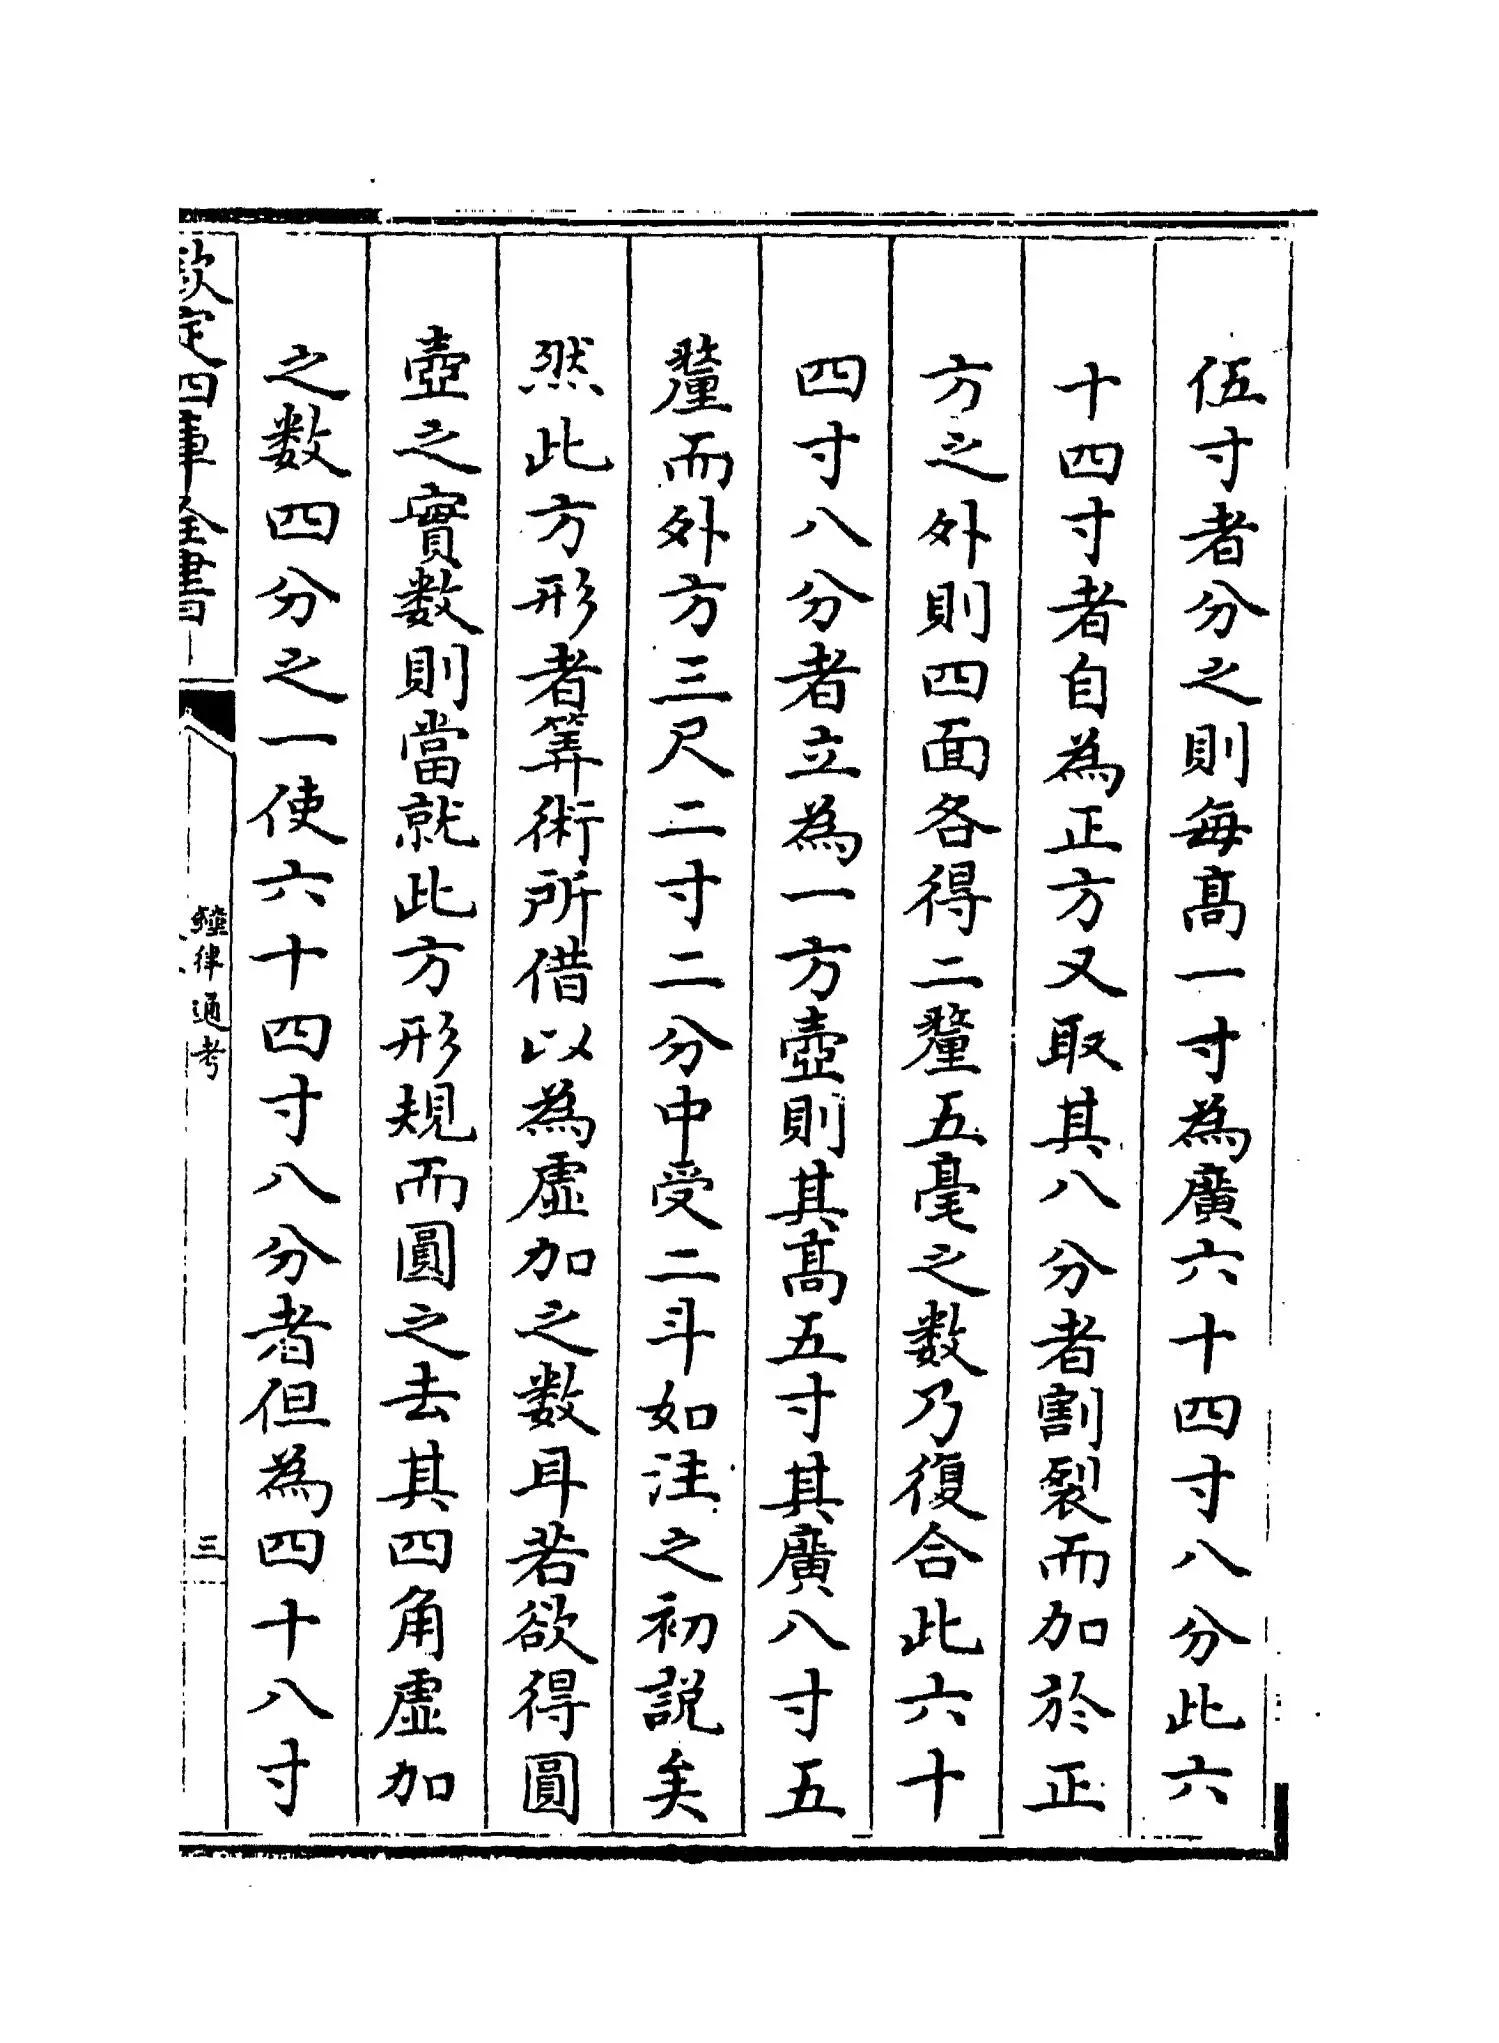 伍寸者分之則每髙一寸為廣六十四寸八分此六
十四寸者自為正方又取其八分者割裂而加於正
方之外則四面各得二釐五毫之數乃復合此六十
四寸八分者立為一方壺則其髙五寸其廣八寸五
釐而外方三尺二寸二分中受二斗如注之初説矣
然此方形者筭術所借以為虛加之數耳若欲得圓
壺之實數則當就此方形規而圓之去其四角虛加
之數四分之一使六十四寸八分者但為四十八寸
欽定四庫全書
鐘律通考
三